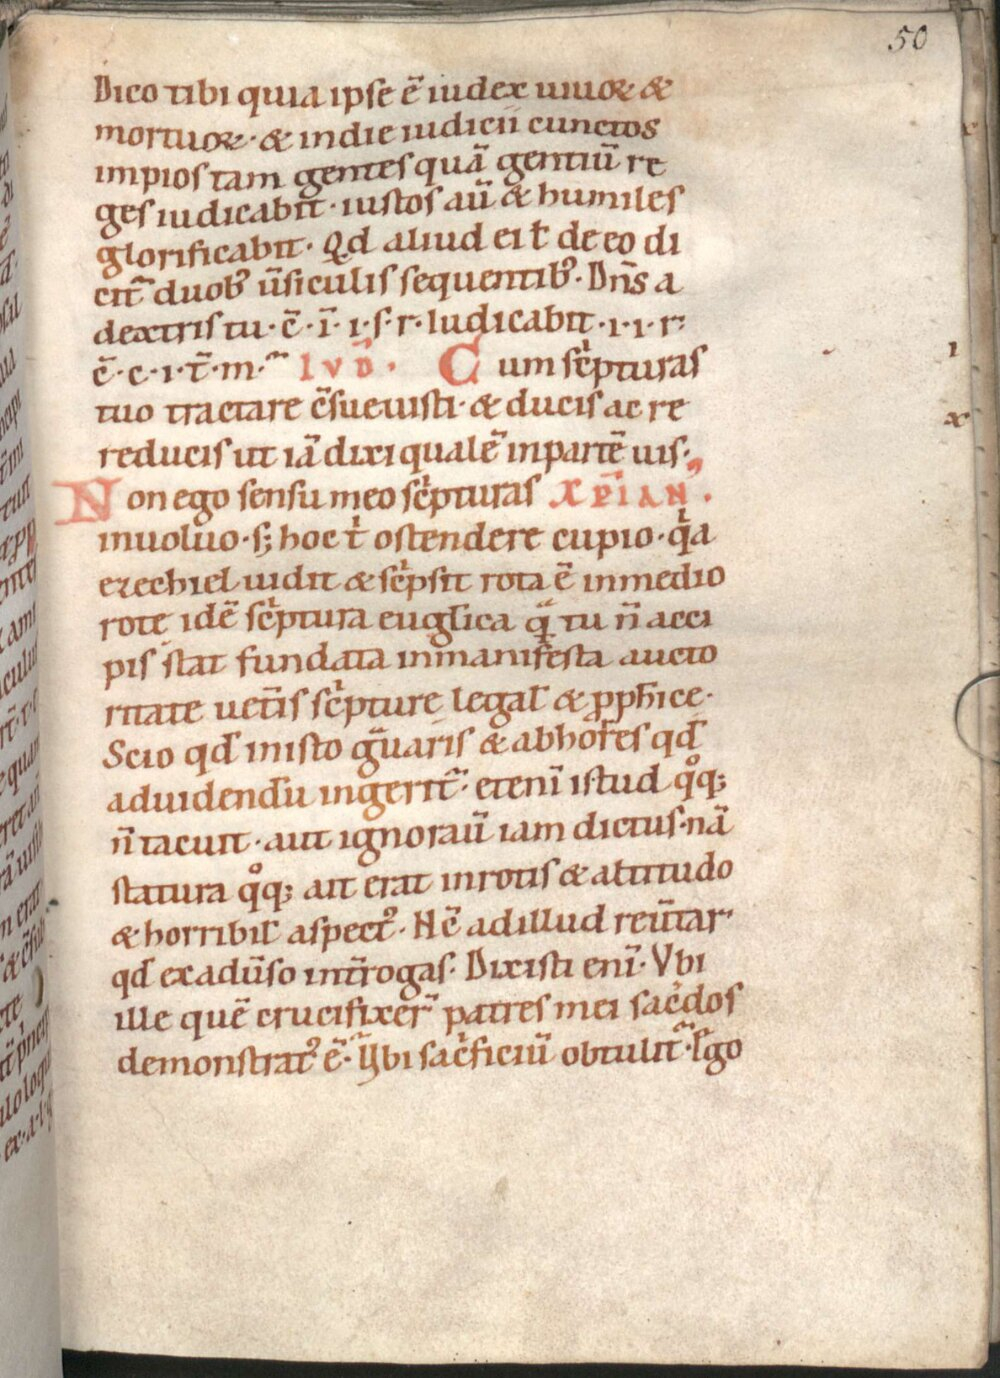 50
Dico tibi quia ipse ē iudex uiuoꝝ &
mortuoꝝ · & indie iudicii cunctos
impios tam gentes quā gentiū re
ges iudicabit · iustos aū & humiles
glorificabit · Qd aliud ei t̄ de eo di
cit᷑ duob᷒ ūsiculis sequentib᷒ · Dn̄s a
dextris tu · ē · ī · ı · s · r · Iudicabit · ı · ı · r
ē · c · ı · t̄ · m · IVD̄ · Cum sc̄pturas
tuo tractare c̄sueuisti · & ducis ac re
reducis ut iā dixi qualē inpartē uis ·
Non ego sensu meo sc̄pturas XP̄IAN᷒ ·
inuoluo · s; hoc t ostendere cupio · qa
ezechiel uidit & sc̄psit rota ē inmedio
rotę idē sc̄ptura euglica q̄ tu n̄ acci
pis stat fundata inmanifesta aucto
ritate uet̄is sc̄pturę legal̄ & ꝓph̄icę ·
Scio qd̄ inisto g̃uaris & abhorr̄es qd̄
aduidend̄u ingerit᷑ · etenī istud qͦq;
n̄ tacuit · aut ignorauī iam dictus · nā
statura qͦq; ait erat inrotis & altitudo
& horribil̄ aspect᷒ · Nc̄ adillud reūtar
qd̄ exadūso int̄rogas · Dixisti enī · Vbi
ille quē crucifixer̄ patres mei sac̄dos
demonstrat᷒ ē · Vbi sac̄ficiū obtulit · Ego